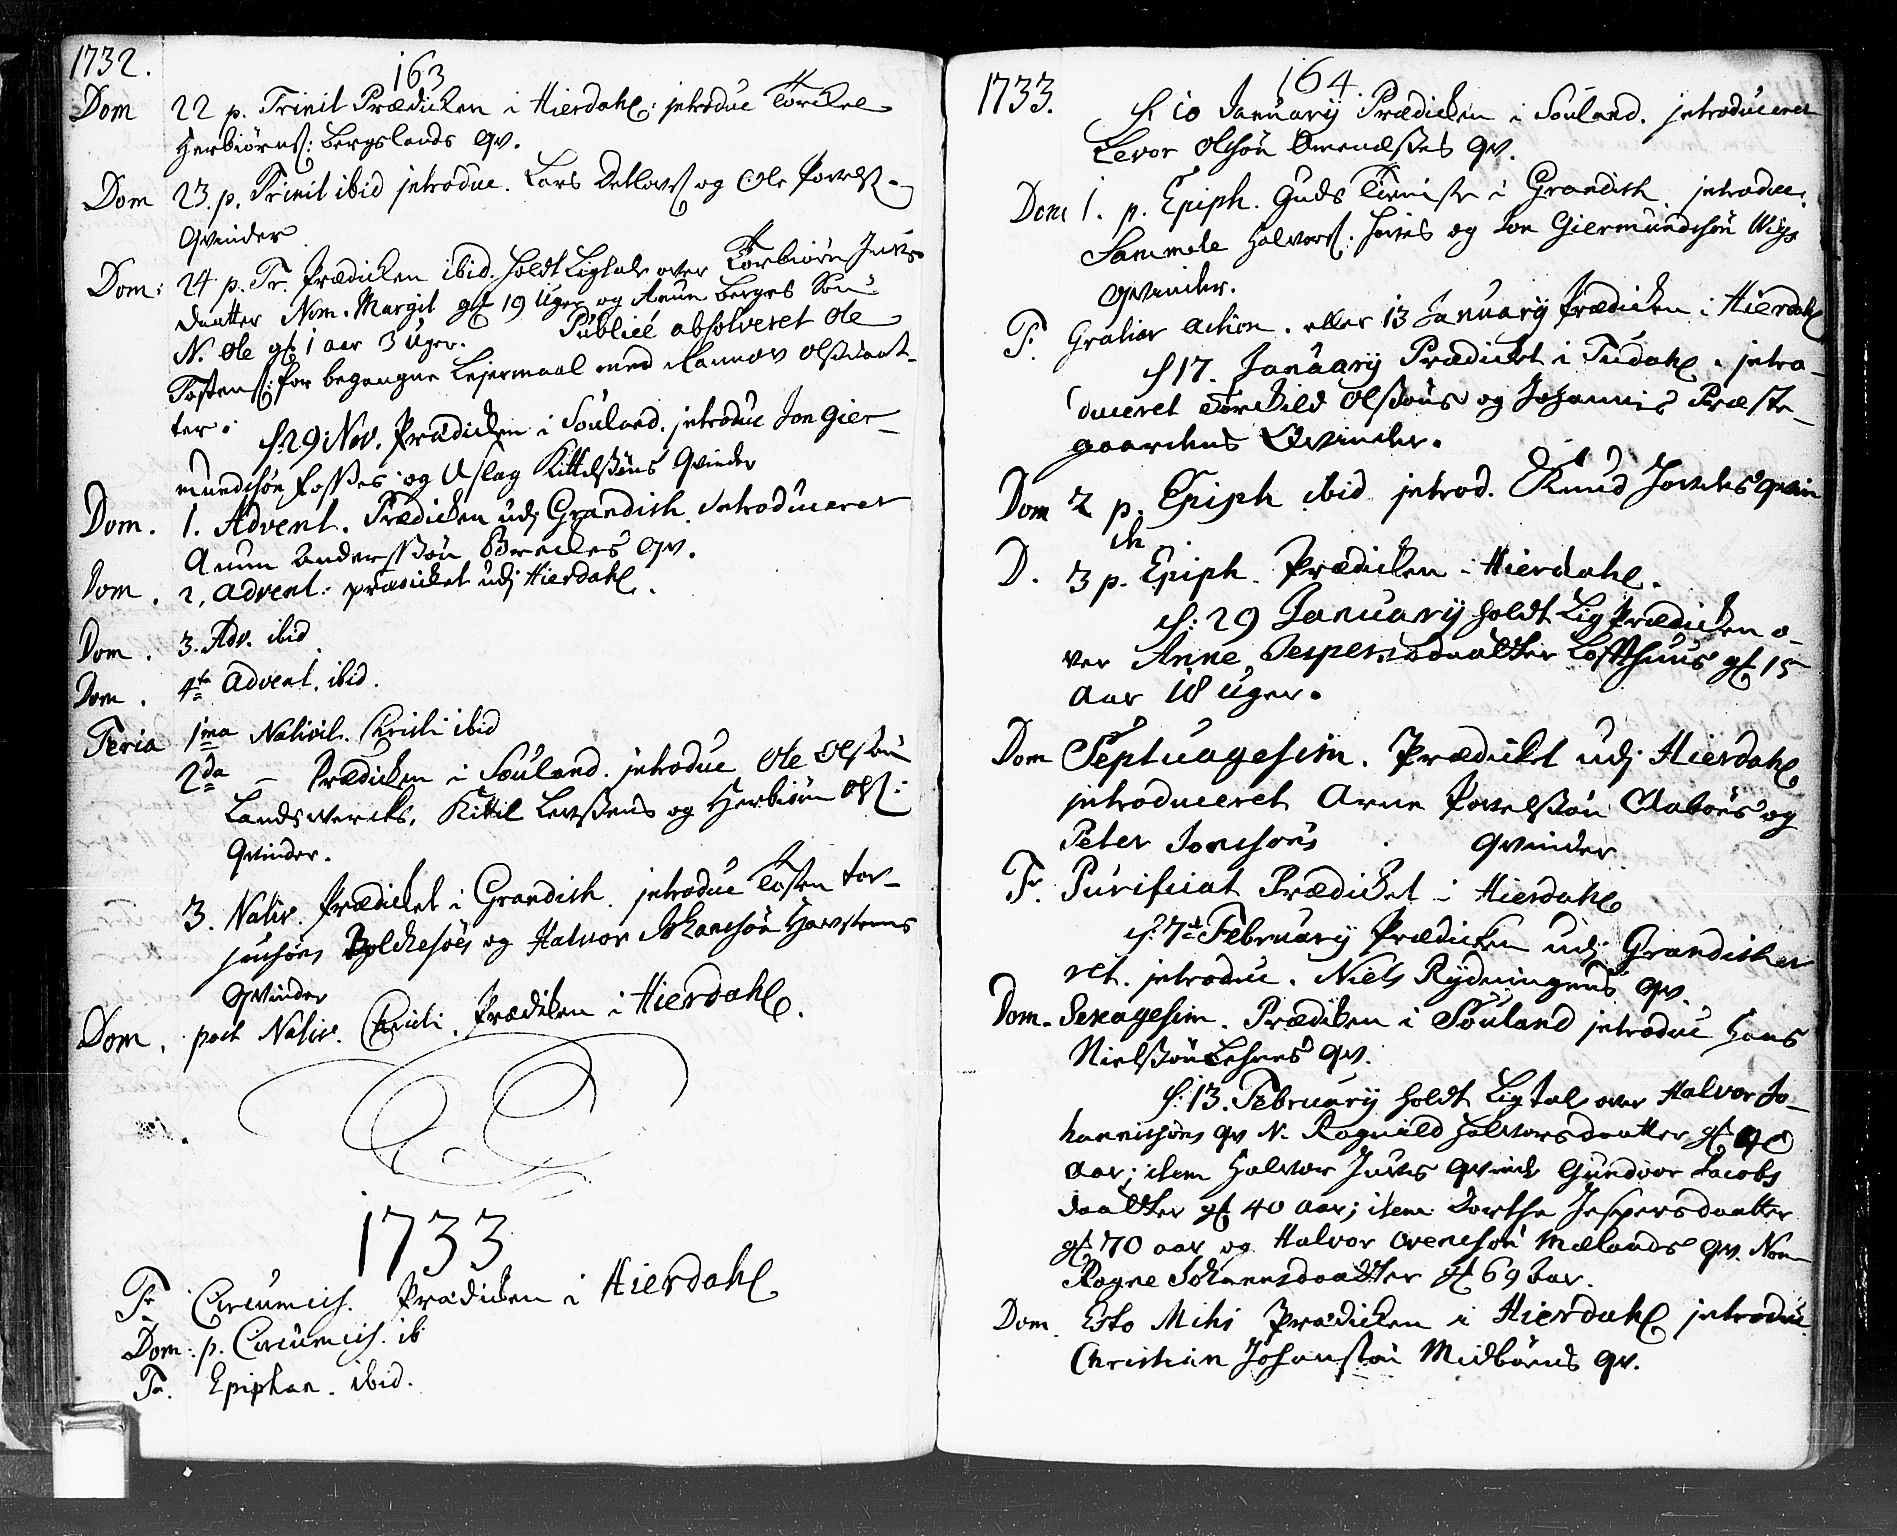 1732.
163
Dom 22 p. Trinit Prædicken i Hierdahl: jntroduc Torckel
Herbiørns: Bergslands qv.
Dom 23. p. Trinit ibid jntroduc. Lars Detlovs og Ole Povels
Qvinder
Dom: 24 p. Tr. Prædicken ibid. holdt Ligtale over Torbiørn Juves
daatter Nom. Margit gl 19 Uger og Anun Berges Søn
N. Ole gl 1 aar 3 Uger. Publicè absolveret Ole
Tostens: for begangne Lejermaal med Rannov Olsdaat-
ter.
d: 29. Nov. Prædicken i Souland. jntroduc Jon Gier-
mundsøn Fosses og Aslag Kittelsøns Qvinder
Dom. 1. Advent. Prædicken udj Grandish. Introduceret
Anun Anderssøn Breckes qv.
Dom. 2. Advent: prædicket udj Hierdahl.
Dom. 3. Adv. ibid.
Dom. 4te Advent. ibid.
Feria 1ma Nativit. Christi ibid
2da – Prædicken i Souland. jntroduc Ole Olssøn
Landsvercks, Kittil Levsens og Herbiørn Ols:
Qvinder.
3. Nativ. Prædicket i Grandish. jntroduc Tosten Tor-
Bolckesøes og Halvor Johansøn Hovstuens
Qvinder
Dom. post Nativ. Christi. Prædiken i Hierdahl.
1733
Fr. Circumcis. Prædicken i Hierdahl
Dom: p. Circumcis. ib
Fr. Epiphan. ibid.
1733.
164
d: 10 January Prædicken i Souland. jntroduceret
Levor Olsøn Omendsses qv.
Dom 1. p. Epiph. Guds Tieniste i Grandish. jntroduc.
Sammele Halvors: og Jon Giermundsøn Wiigs
Qvinder.
F. Gratiar action. eller 13 January Prædicken i Hierdahl
d 17. January Prædicket i Tudahl. jntro-
duceret Torckild Olssøns og Johannis Præste-
gaardens Qvinder.
Dom 2 p. Epiph ibid jntrod. Knud Qvin
de
D. 3 p. Epiph. Prædicken i Hierdahl.
d: 29 January holdt Lig Prædicken o-
ver Anne Jespersdaatter Loffthuus gl 15
aar 18 Uger.
Dom Septuagesim. Prædicket udj Hierdahl
jntroduceret Arne Povelsøn og
Peter Jonssøns Qvinder
Fr. Purificat Prædicket i Hierdahl
d: 7de February Prædicken udj Grandisher
ret. jntroduc. Niels Rydningens qv.
Dom. Sexagesim. Prædiken i Souland jntroduc Hans
Nielssøn qv.
d: 13. February holdt Ligtale over Halvor Jo-
hannisøns qv N. Ragnild Halvorsdaatter gl
aar; item Halvor Juves Qvinde Gundvor Jacobs
daatter gl 40 aar; item Dorthe Jespersdaatter
gl 70 aar og Halvor Ovensøn Mælands qv. Nom
Ragne Johannesdaatter gl 69 aar.
Dom. Esto Mihi Prædicken i Hierdahl jntroduc.
Christian Johanssøn Midbøens qv.